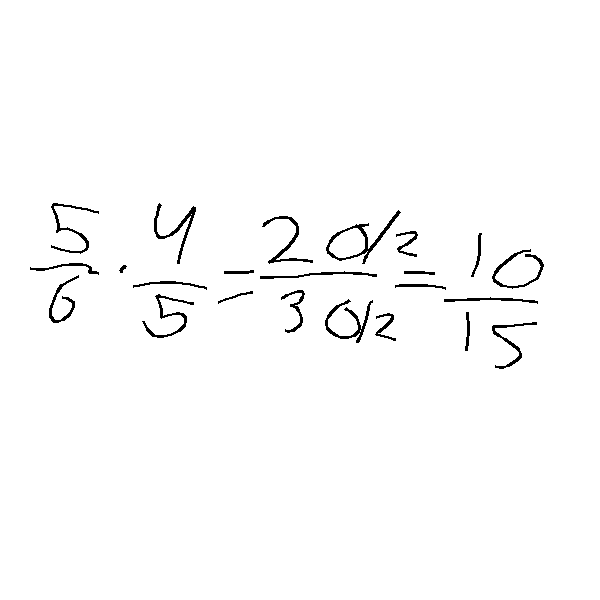 5/6 · 4/5 = 20/2 / 30/2 = 10/15